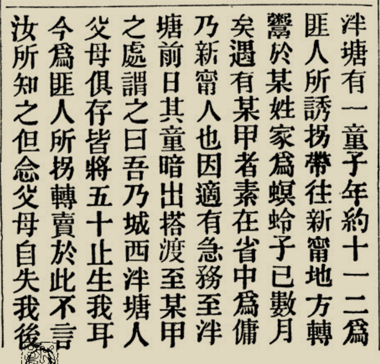 泮塘有一童子年約十一二爲
匪人所誘拐帶往新甯地方轉
鬻於某姓家爲螟蛉子已數月
矣遇有某甲者素在省中爲傭
乃新甯人也因適有急務至泮
塘前日其童暗出搭渡至某甲
之處謂之曰吾乃城西泮塘人
父母俱存皆將五十止生我耳
今爲匪人所拐轉賣於此不言
汝所知之但念父母自失我後